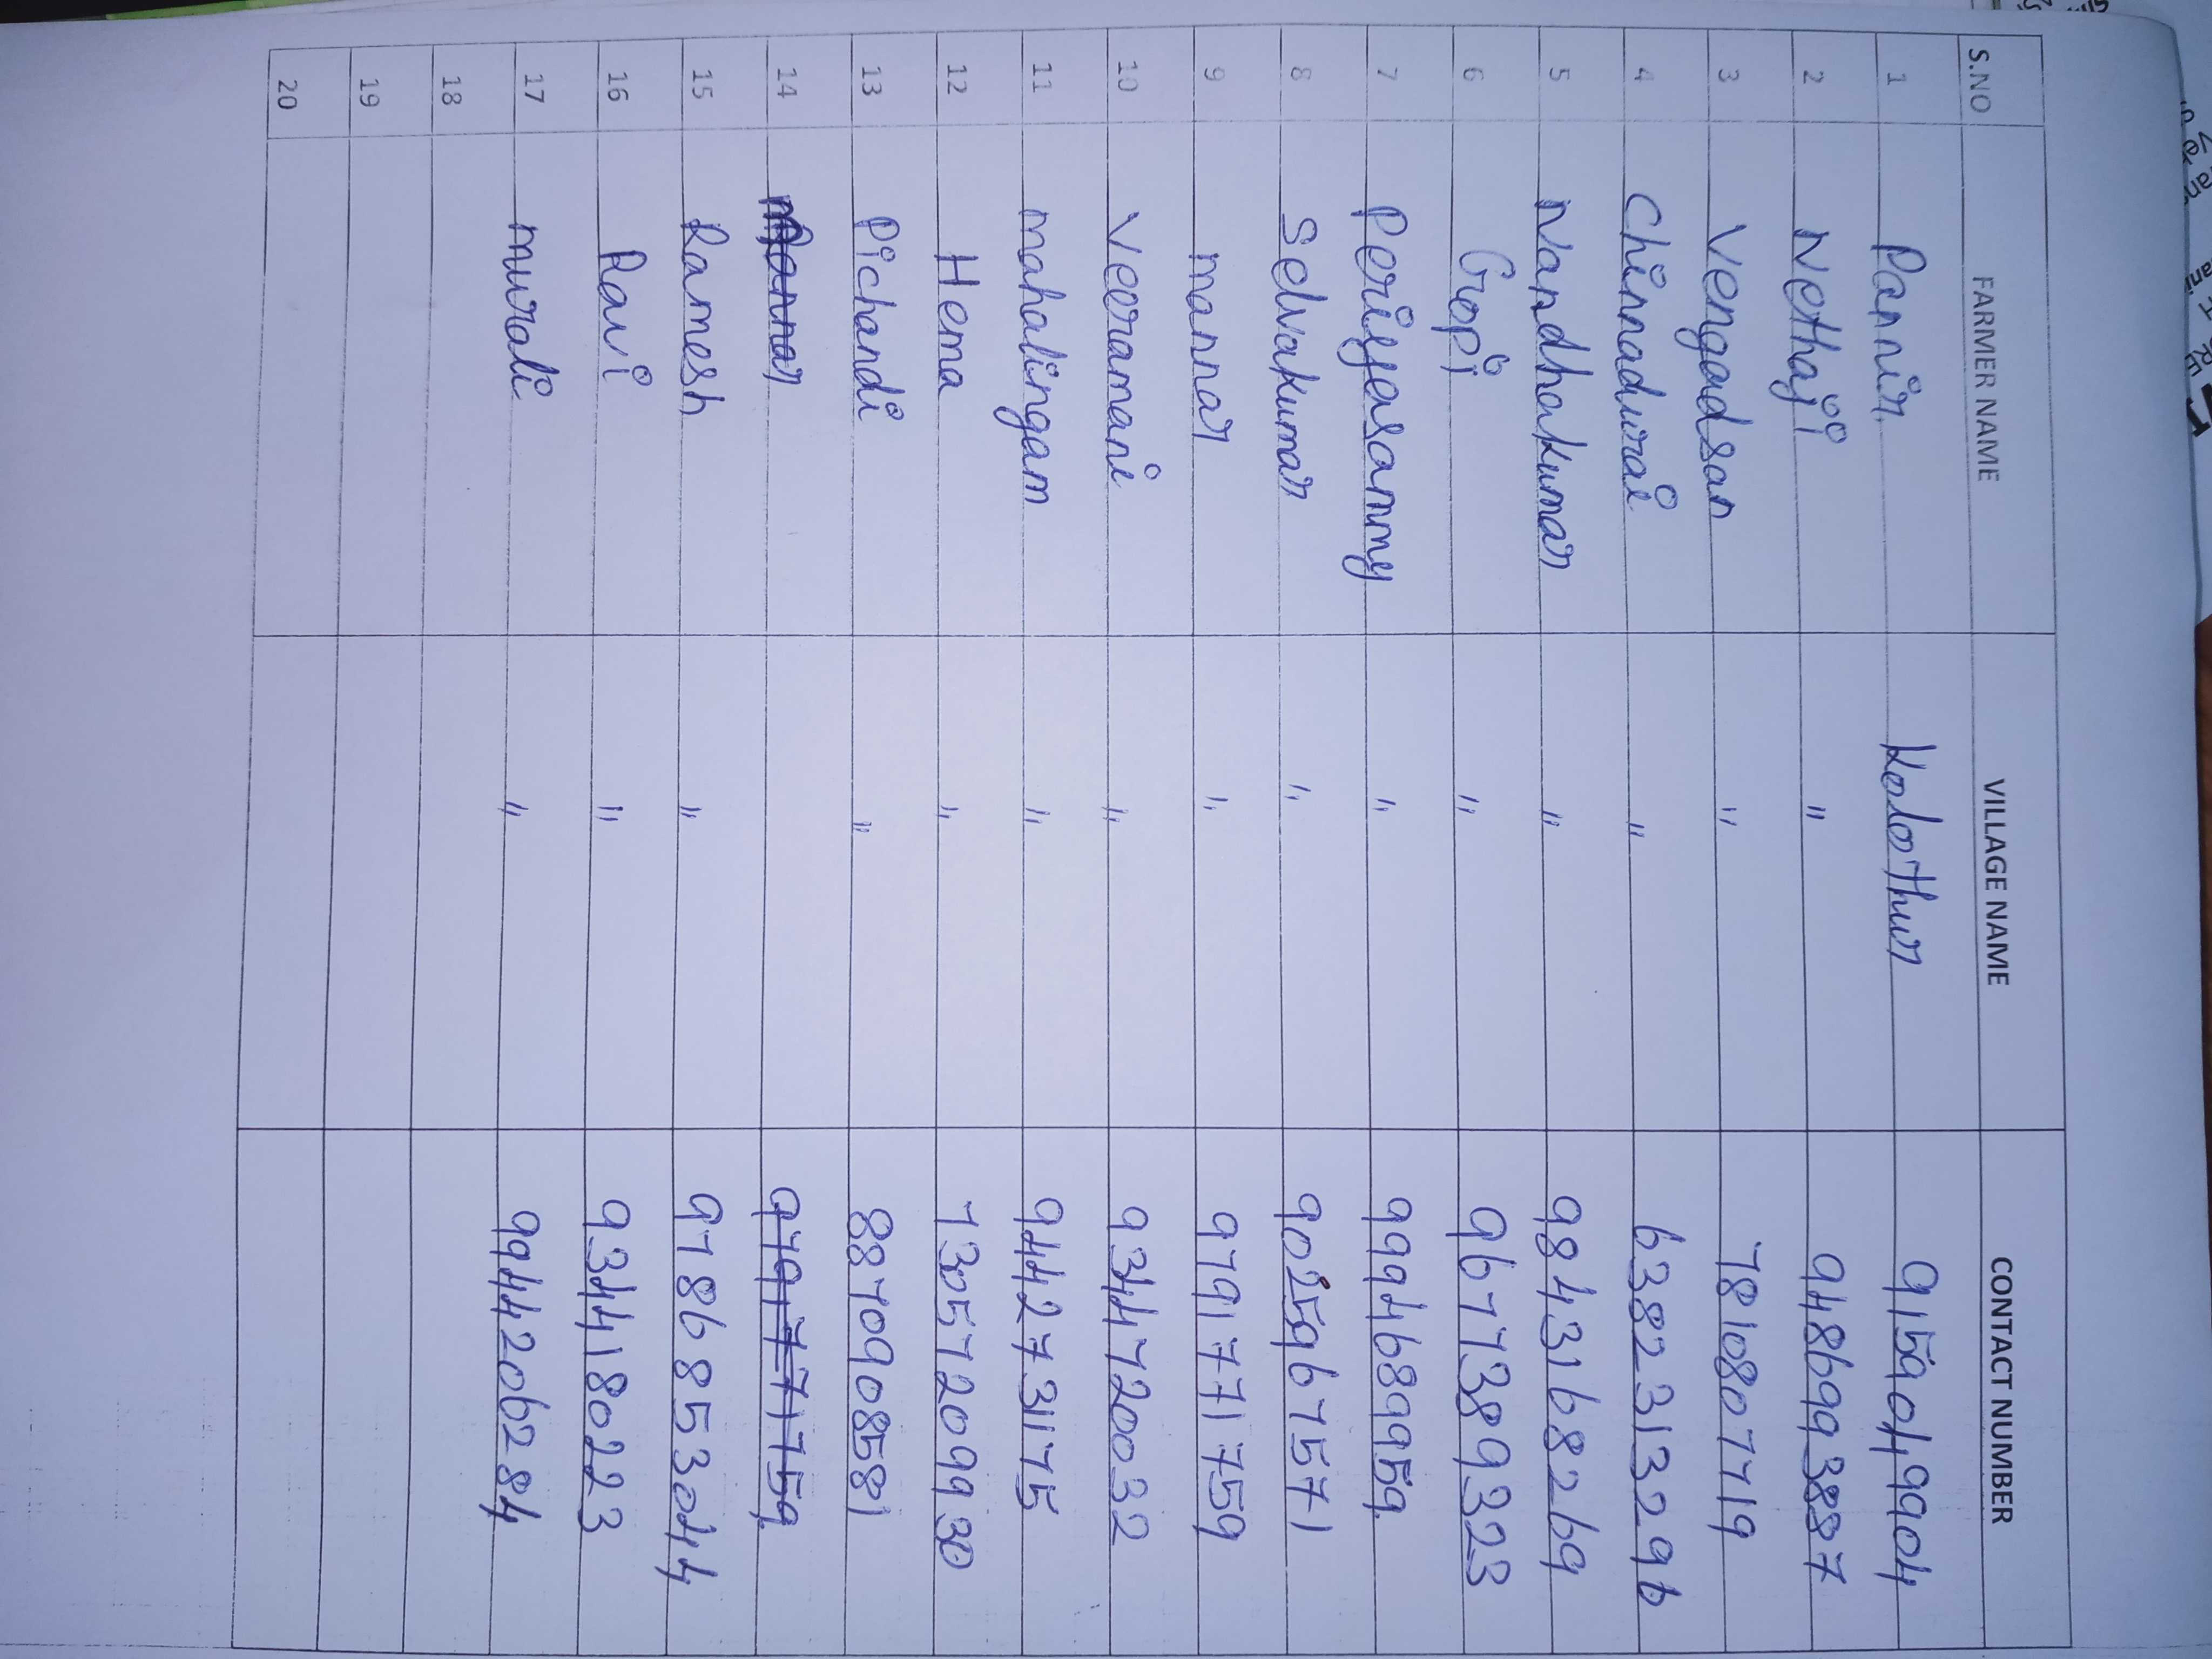 S.NO FARMER NAME VILLAGE NAME CONTACT NUMBER
1 Pannir Kolothur 9159049904
2 Nethaji " 9486993887
3 Vengadsan " 7810807719
4 Chinnadurai " 6382313296
5 Nandhakumar " 9843168269
6 Gopi " 9677389323
7 Periyasammy " 9994689959
8 Selvakumar " 9025967571
9 mannar " 9791771759
10 Veeramani " 9344720032
11 mahalingam " 9442731175
12 Hema " 730572099930
13 Pichandi " 8870908581
14 Mannar 9791771759
15 Ramesh " 9786853044
16 Ravi " 9344180223
17 murali " 9944206284
18
19
20